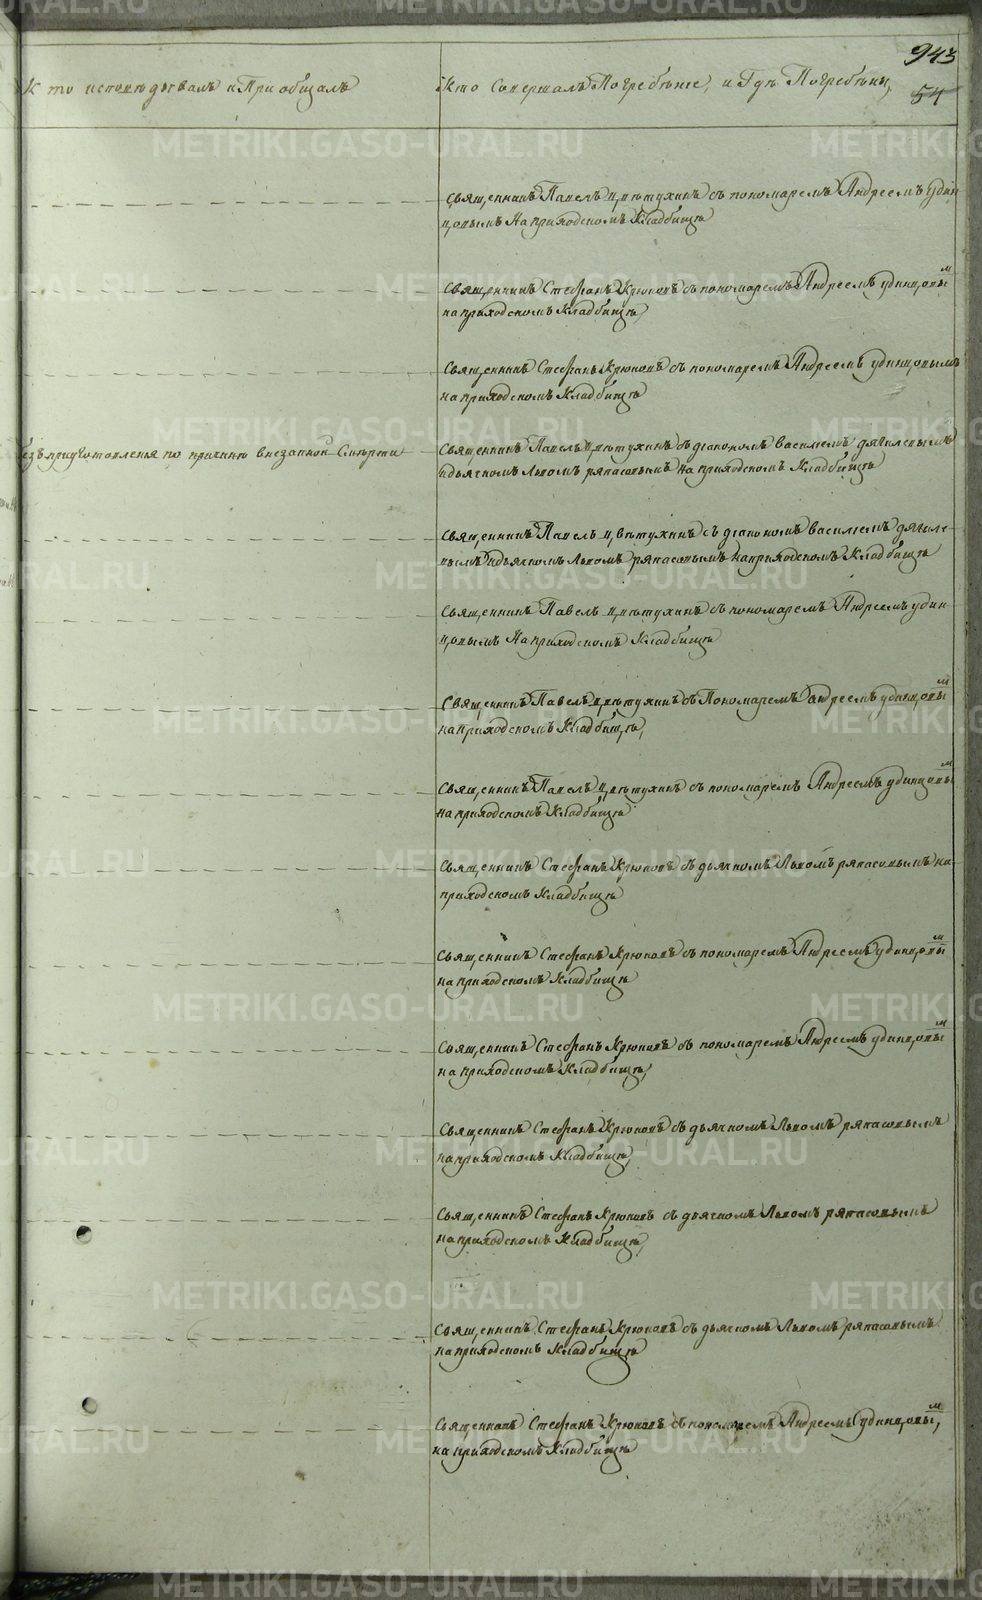 943
54
Кто исповѣдывалъ и Приобщалъ
Кто Совершалъ Погребѣніе, и Гдѣ Погребѣны,
Священникъ Павелъ Цвѣтухинъ съ пономаремъ Андреемъ Удин
цовымъ На приходскомъ Кладбищѣ
Священникъ Стефанъ Крюковъ съ пономаремъ Андреемъ удинцовым
на приходскомъ Кладбищѣ,
Священникъ Стефанъ Крюковъ съ пономаремъ Андреемъ удинцовымъ
на приходскомъ Кладбищѣ
безъ приуготовленія по причинѣ внезапной Смерти
Священникъ Павелъ Цвѣтухинъ съ діакономъ василіемъ
идьячкомъ Львомъ ряпасовымъ на приходскомъ Кладбищѣ
Священникъ Павелъ Цвѣтухинъ съ діакономъ василіемъ
идьячкомъ Львомъ ряпасовымъ на приходскомъ Кладбищѣ
Священникъ Павелъ Цвѣтухинъ съ пономаремъ Андреемъ удин
цовымъ На приходскомъ Кладбищѣ
Священникъ Павелъ Цвѣтухинъ съ Пономаремъ андреемъ удинцовым
на приходскомъ Кладбищѣ,
Священникъ Павелъ Цвѣтухинъ съ пономаремъ Андреемъ удинцовым
на приходскомъ Кладбищѣ
Священникъ Стефанъ Крюковъ съ дьячкомъ Львомъ ряпасовымъ на
приходскомъ Кладбищѣ
Священникъ Стефанъ Крюковъ съ пономаремъ Андреемъ удинцовым
на приходскомъ Кладбищѣ
Священникъ Стефанъ Крюковъ съ пономаремъ Андреемъ удинцовым
на приходскомъ Кладбищѣ,
Священникъ Стефанъ Крюковъ съ дьячкомъ Львомъ ряпасовымъ
на приходскомъ Кладбищѣ,
Священникъ Стефанъ Крюковъ съ дьячкомъ Львомъ ряпасовымъ
на приходскомъ Кладбищѣ,
Священникъ Стефанъ Крюковъ съ дьячкомъ Львомъ ряпасовымъ
на приходскомъ Кладбищѣ
Священникъ Стефанъ Крюковъ съ пономаремъ Андреемъ удинцовым,
на приходскомъ Кладбищѣ